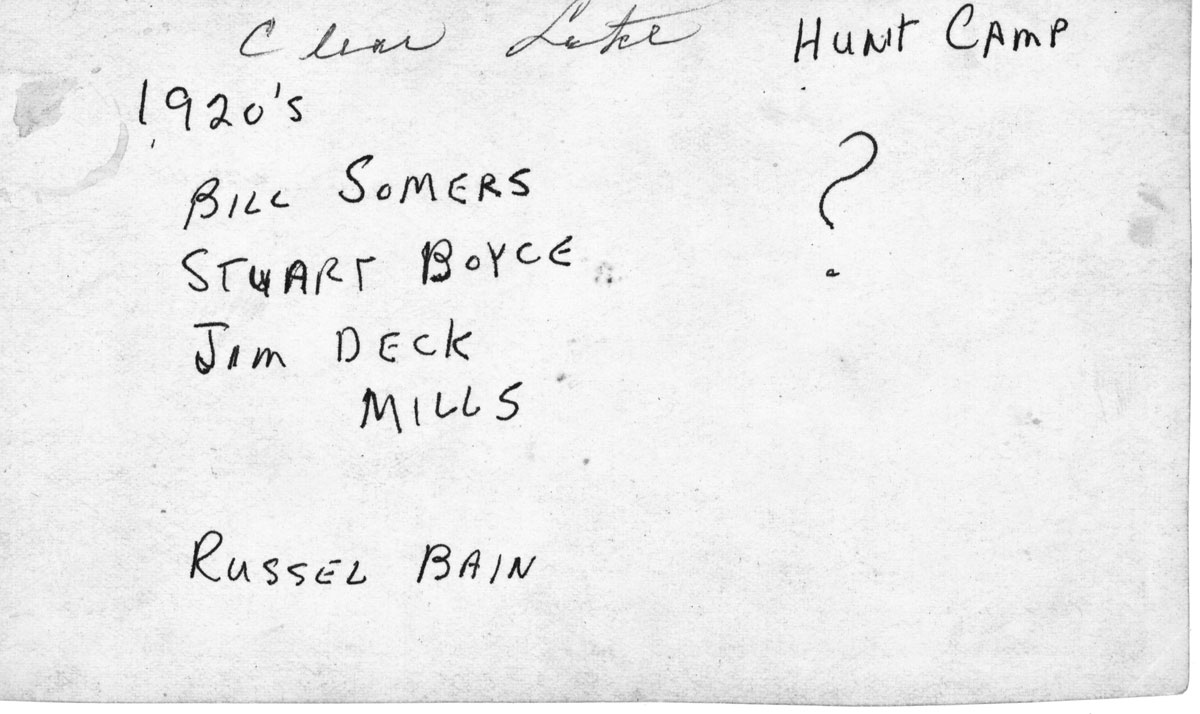 Clear Lake HUNT CAMP
1920's
?
BILL SOMERS
STUART BOYCE
JIM DECK
MILLS
RUSSEL BAIN